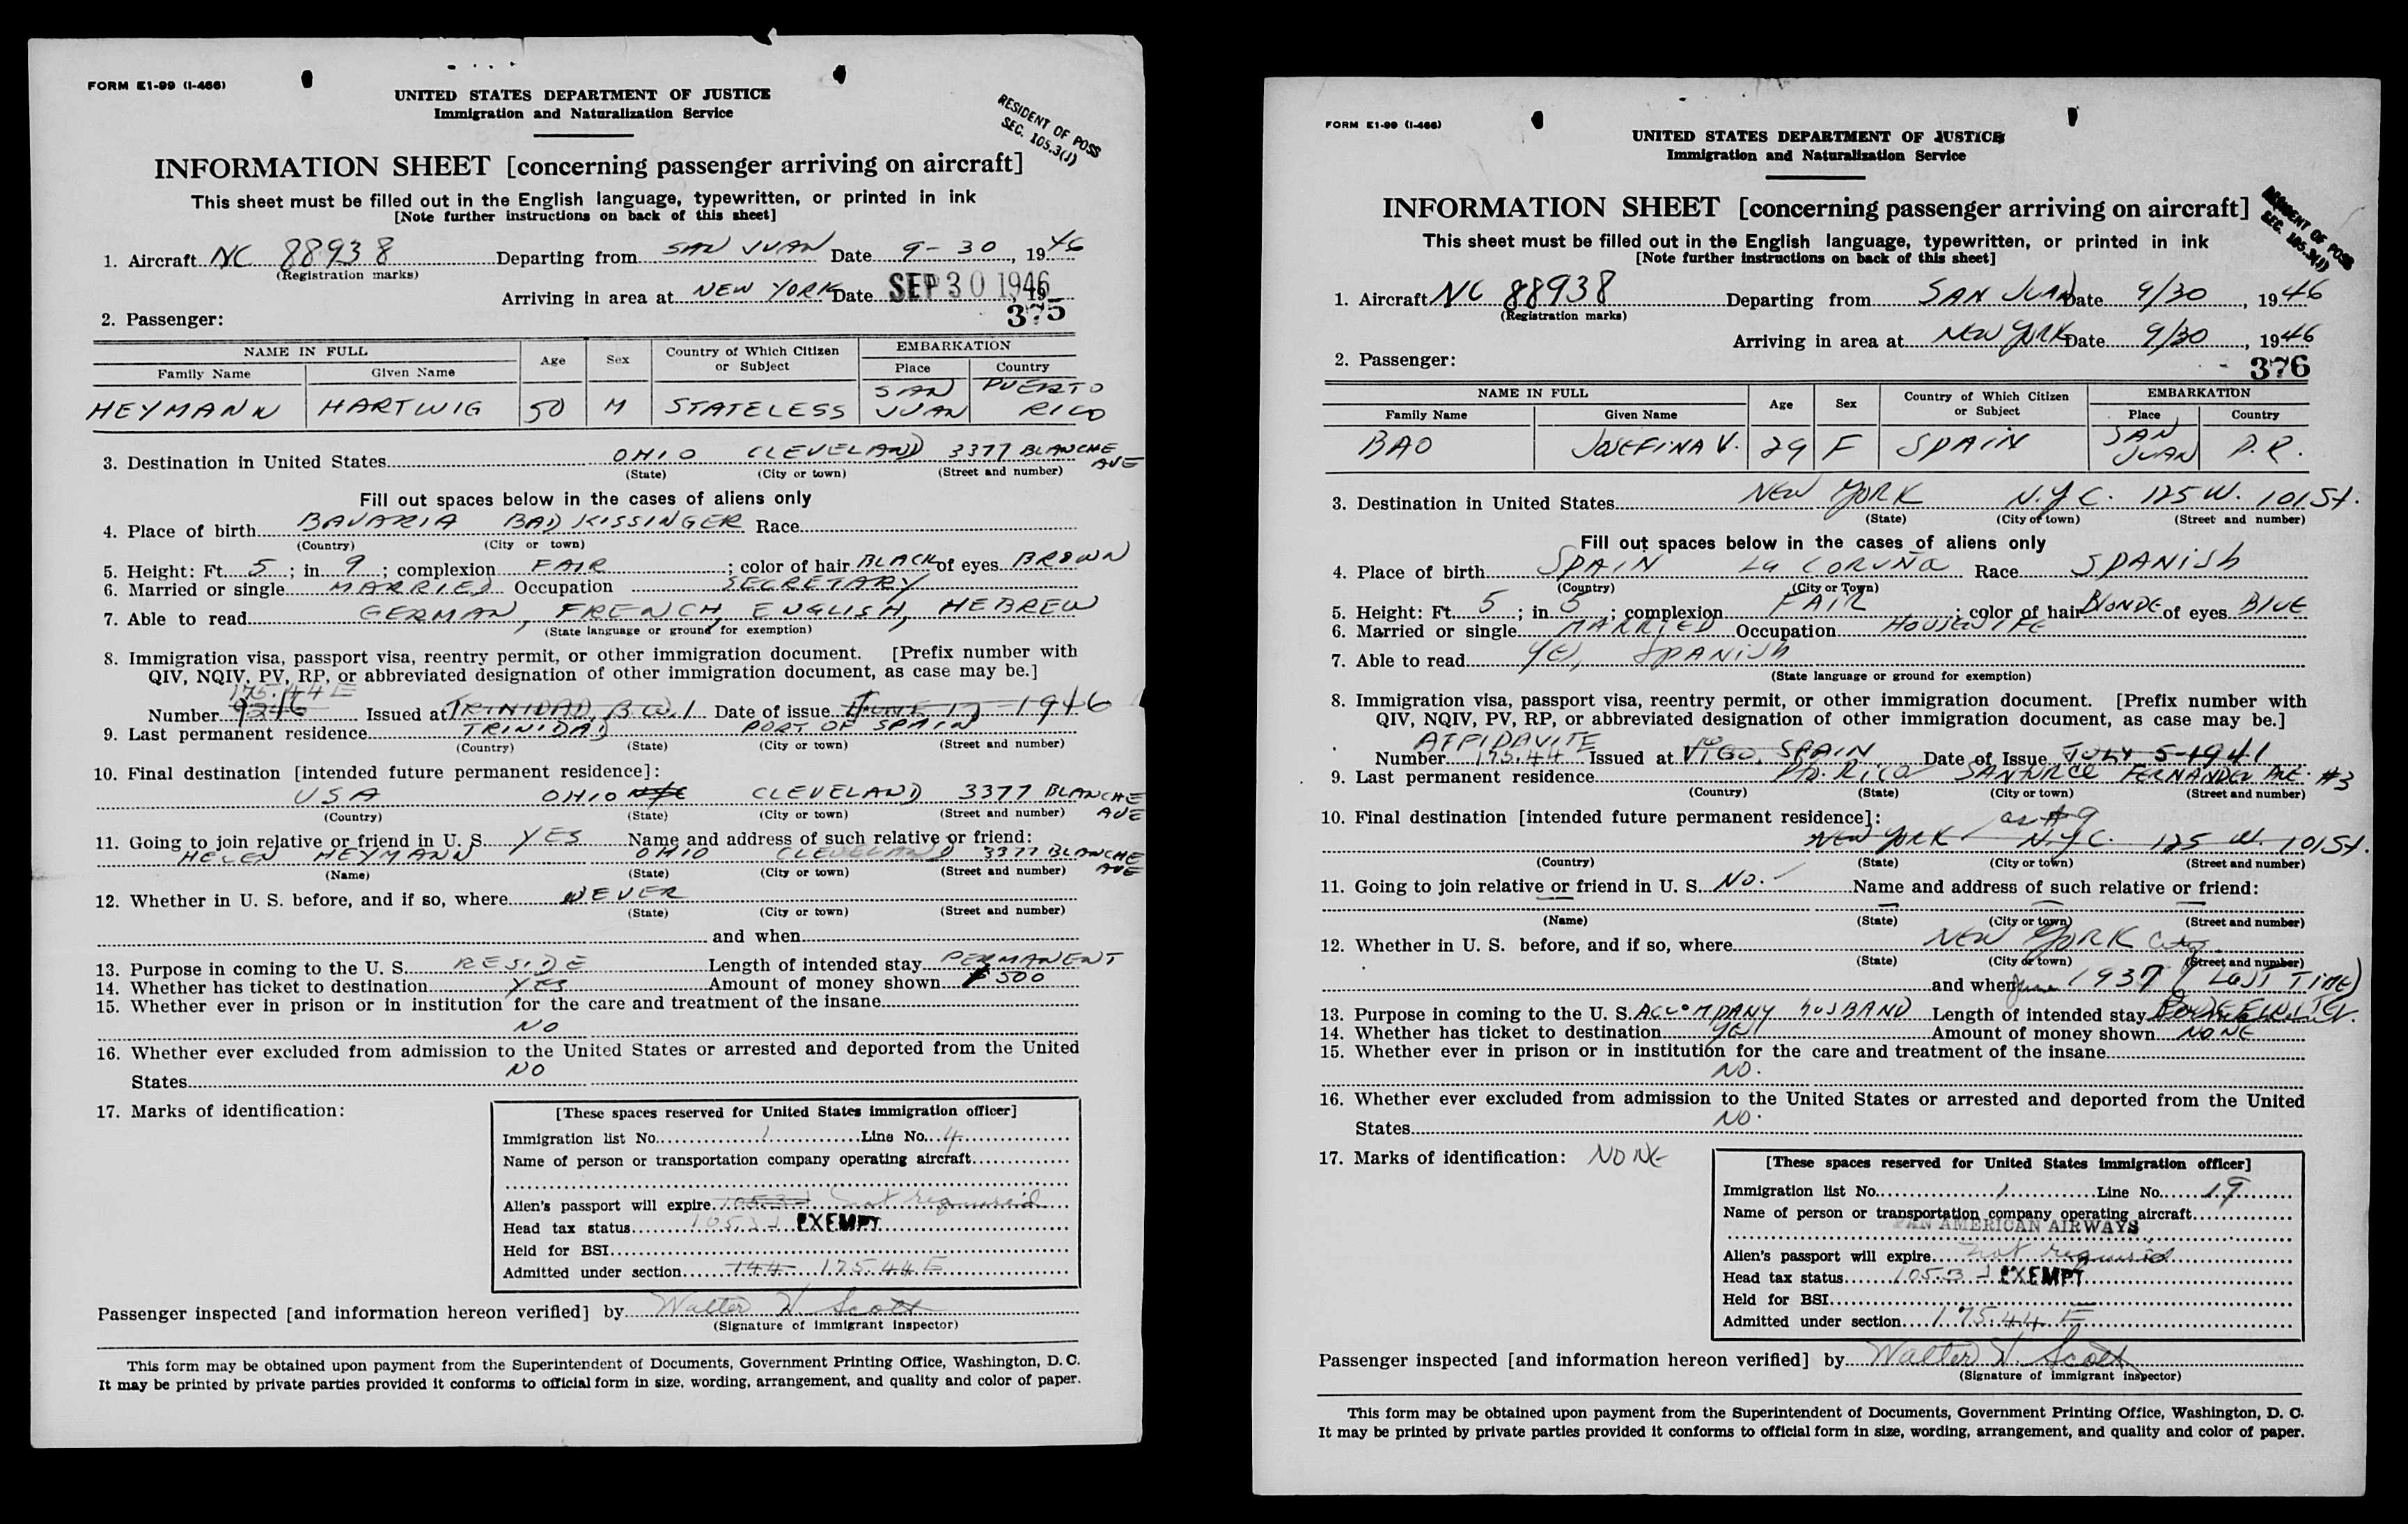 FORM E1-99 (I-466)
UNITED STATES DEPARTMENT OF JUSTICE
Immigration and Naturalization Service
RESIDENT OF POSS
SEC. 105.3(J)
INFORMATION SHEET [concerning passenger arriving on aircraft]
This sheet must be filled out in the English language, typewritten, or printed in ink
[Note further instructions on back of this sheet]
1. Aircraft NC 88938 Departing from SAN JUAN Date 9-30, 1946
(Registration marks)
Arriving in area at NEW YORK Date SEP 30 1946, 19
2. Passenger: 375
NAME IN FULL Age Sex Country of Which Citizen or Subject EMBARKATION
Family Name Given Name Place Country
HEYMANN HARTWIG 50 M STATELESS SAN JUAN PUERTO RICO
3. Destination in United States OHIO CLEVELAND 3377 BLANCHE AVE
(State) (City or town) (Street and number)
Fill out spaces below in the cases of aliens only
4. Place of birth BAVARIA BAD KISSINGER Race
(Country) (City or town)
5. Height: Ft. 5; in 9; complexion FAIR; color of hair BLACK of eyes BROWN
6. Married or single MARRIED Occupation SECRETARY
7. Able to read GERMAN, FRENCH, ENGLISH, HEBREW
(State language or ground for exemption)
8. Immigration visa, passport visa, reentry permit, or other immigration document. [Prefix number with
QIV, NQIV, PV, RP, or abbreviated designation of other immigration document, as case may be.]
175.44 E
Number 9216 Issued at TRINIDAD, B.W.I Date of issue JUNE 17 - 1946
9. Last permanent residence TRINIDAD PORT OF SPAIN
(Country) (State) (City or town) (Street and number)
10. Final destination [intended future permanent residence]:
USA OHIO CLEVELAND 3377 BLANCHE AVE
(Country) (State) (City or town) (Street and number)
11. Going to join relative or friend in U. S. YES Name and address of such relative or friend:
HELEN HEYMANN OHIO CLEVELAND 3377 BLANCHE AVE
(Name) (State) (City or town) (Street and number)
12. Whether in U. S. before, and if so, where NEVER
(State) (City or town) (Street and number)
and when
13. Purpose in coming to the U. S. RESIDE Length of intended stay PERMANENT
14. Whether has ticket to destination YES Amount of money shown $ 500
15. Whether ever in prison or in institution for the care and treatment of the insane
NO
16. Whether ever excluded from admission to the United States or arrested and deported from the United
States NO
17. Marks of identification:
[These spaces reserved for United States immigration officer]
Immigration list No. 1 Line No. 4
Name of person or transportation company operating aircraft
Alien's passport will expire 105.3 J not required
Head tax status 105.3 J EXEMPT
Held for BSI
Admitted under section 144 175.44 E
Passenger inspected [and information hereon verified] by Walter W. Scott
(Signature of immigrant inspector)
This form may be obtained upon payment from the Superintendent of Documents, Government Printing Office, Washington, D. C.
It may be printed by private parties provided it conforms to official form in size, wording, arrangement, and quality and color of paper.
FORM E1-99 (I-466)
UNITED STATES DEPARTMENT OF JUSTICE
Immigration and Naturalization Service
RESIDENT OF POSS
SEC. 105.3(J)
INFORMATION SHEET [concerning passenger arriving on aircraft]
This sheet must be filled out in the English language, typewritten, or printed in ink
[Note further instructions on back of this sheet]
1. Aircraft NC 88938 Departing from SAN JUAN Date 9/30, 1946
(Registration marks)
Arriving in area at NEW YORK Date 9/30, 1946
2. Passenger: 376
NAME IN FULL Age Sex Country of Which Citizen or Subject EMBARKATION
Family Name Given Name Place Country
BAO JOSEFINA V. 29 F SPAIN SAN JUAN P.R.
3. Destination in United States NEW YORK N.Y.C. 125 W. 101 St.
(State) (City or town) (Street and number)
Fill out spaces below in the cases of aliens only
4. Place of birth SPAIN La CORUÑA Race SPANISh
(Country) (City or Town)
5. Height: Ft. 5; in. 5; complexion FAIR; color of hair BlONDE of eyes BlUE
6. Married or single MARRIED Occupation HOUSEWIFE
7. Able to read YES, SPANISh
(State language or ground for exemption)
8. Immigration visa, passport visa, reentry permit, or other immigration document. [Prefix number with
QIV, NQIV, PV, RP, or abbreviated designation of other immigration document, as case may be.]
AFFIDAVITE
Number 175.44 Issued at VIGO, SPAIN Date of Issue JULY 5-1941
9. Last permanent residence PTO. RICO SANTURCE FERNANDEZ AVE. #3
(Country) (State) (City or town) (Street and number)
10. Final destination [intended future permanent residence]: as # 9
NEW YORK N.Y.C. 125 W. 101 St.
(Country) (State) (City or town) (Street and number)
11. Going to join relative or friend in U. S. NO. Name and address of such relative or friend:
(Name) (State) (City or town) (Street and number)
12. Whether in U. S. before, and if so, where NEW YORK City
(State) (City or town) (Street and number)
and when June 1937 (LAST TIME)
13. Purpose in coming to the U. S. ACCOMPANY hUSBAND Length of intended stay
14. Whether has ticket to destination YES Amount of money shown NONE
15. Whether ever in prison or in institution for the care and treatment of the insane
NO.
16. Whether ever excluded from admission to the United States or arrested and deported from the United
States NO.
17. Marks of identification: NONE
[These spaces reserved for United States immigration officer]
Immigration list No. 1 Line No. 19
Name of person or transportation company operating aircraft
PAN AMERICAN AIRWAYS
Alien's passport will expire not required
Head tax status 105.3 J EXEMPT
Held for BSI
Admitted under section 175.44 E
Passenger inspected [and information hereon verified] by Walter W. Scott
(Signature of immigrant inspector)
This form may be obtained upon payment from the Superintendent of Documents, Government Printing Office, Washington, D. C.
It may be printed by private parties provided it conforms to official form in size, wording, arrangement, and quality and color of paper.